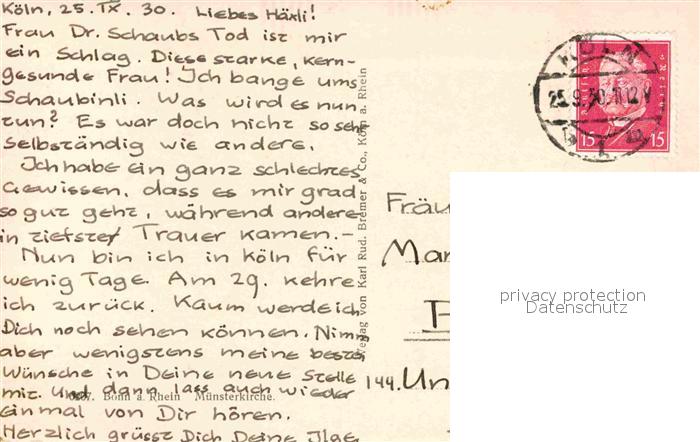 Köln, 25. IX. 30. Liebes Häxli!
Frau Dr. Schaubs Tod ist mir
ein Schlag. Diese starke, kern-
gesunde Frau! Ich bange ums
Schaubinli. Was wird es nun
tun? Es war doch nicht so sehr
selbständig wie andere.
Ich habe ein ganz schlechtes
Gewissen, dass es mir grad
so gut geht, während andere
in tiefster Trauer kamen.-
Nun bin ich in Köln für
wenig Tage. Am 29. kehre
ich zurück. Kaum werde ich
Dich noch sehen können. Nimm
aber wenigstens meine beste
Wünsche in Deine neue Stelle
mit. Und dann lass auch wieder
einmal von Dir hören.
Herzlich grüsst Dich Deine Ilge
Bonn a. Rhein Münsterkirche.
Verlag von Karl Rud. Bremer & Co., Köln a. Rhein
KÖLN
25.9.30.11-12V
15 15
Fräu
Mar
144. Un
privacy protection
Datenschutz